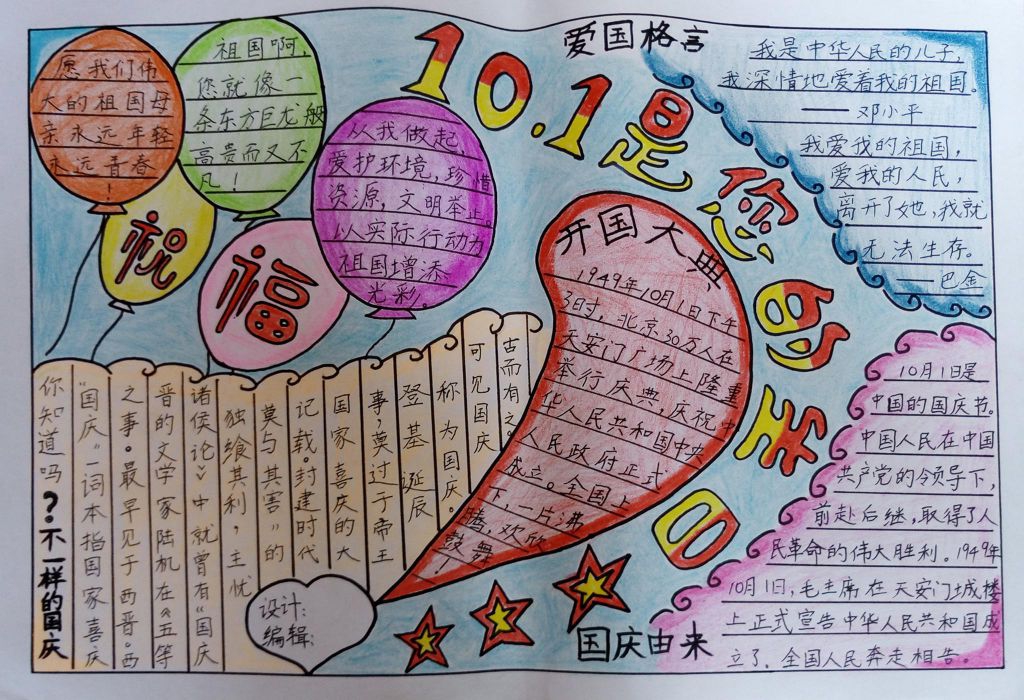 愿我们伟
大的祖国母
亲永远年轻
永远青春
！
祖国啊，
您就像一
条东方巨龙般
高贵而又不
凡！
从我做起
爱护环境，珍惜
资源，文明举止。
以实际行动为
祖国增添
光彩。
祝
福
10.1是您的生日
爱国格言
我是中华人民的儿子，
我深情地爱着我的祖国。
——邓小平
我爱我的祖国，
爱我的人民，
离开了她，我就
无法生存。
——巴金
开国大典
1949年10月1日下午
3时，北京30万人在
天安门广场上隆重
举行庆典，庆祝中
华人民共和国中央
人民政府正式
成立。全国上
下，一片沸
腾，欢欣
鼓舞！
你知道吗？不一样的国庆
“国庆”一词本指国家喜庆
之事。最早见于西晋。西
晋的文学家陆机在《五等
诸侯论》中就曾有“国庆
独飨其利，主忧
莫与其害”的
记载。封建时代
国家喜庆的大
事，莫过于帝王
登基诞辰
称为国庆。
可见国庆
古而有之。
设计：
编辑：
国庆由来
10月1日是
中国的国庆节。
中国人民在中国
共产党的领导下，
前赴后继，取得了人
民革命的伟大胜利。1949年
10月1日，毛主席在天安门城楼
上正式宣告中华人民共和国成
立了，全国人民奔走相告。